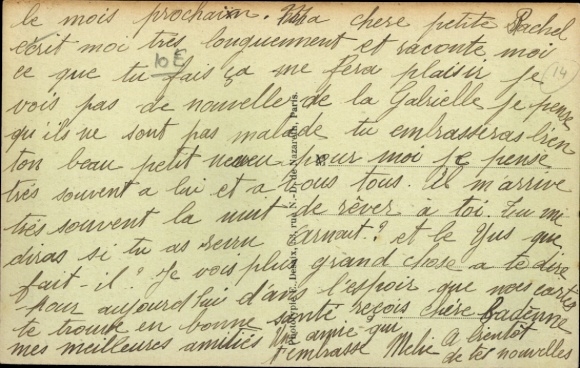 le mois prochain. Ma chere petite Rachel
ecrit moi très longuement et raconte moi
ce que tu fais ça me fera plaisir je
vois pas de nouvelle de la Gabrielle je pense
qu'ils ne sont pas malade tu embrasseras bien
ton beau petit neveu pour moi je pense
très souvent a lui et a vous tous. il m'arrive
très souvent la nuit de rêver à toi. Tu me
diras si tu as revu Arnaut? et le que
fait-il? Je vois plus grand chose a te dire
pour aujourd'hui d'ans l'espoir que nos cartes
te trouve en bonne santé reçois chère
mes meilleures amitiés Une amie qui
t'embrasse Melie A bientôt
de tes nouvelles
10 E
14
Paris.